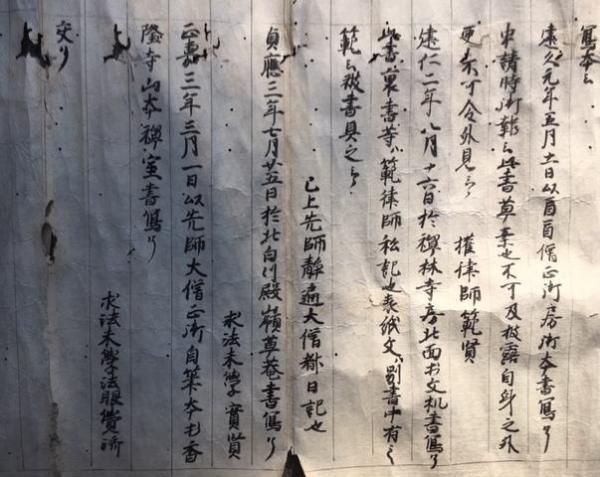 寫本云
建久元年五月十一日以酉酉僧正御房御本書寫了
申請時御報云此書草案也不可及披露自身之外
更不可令外見云々 權律師範賢
建仁二年八月十六日於禪林寺房北面於文机書寫了
此書裏書等ハ範律師私記也表紙文ハ別書中有之
範云披書具之云々
已上先師靜遍大僧都日記也
貞應三年七月廿五日於北白川殿嶺草菴書寫了
求法末學實賢
正嘉三年三月一日以先師大僧正御自筆本於香
隆寺山本禪室書寫了
求法末學法眼
交了